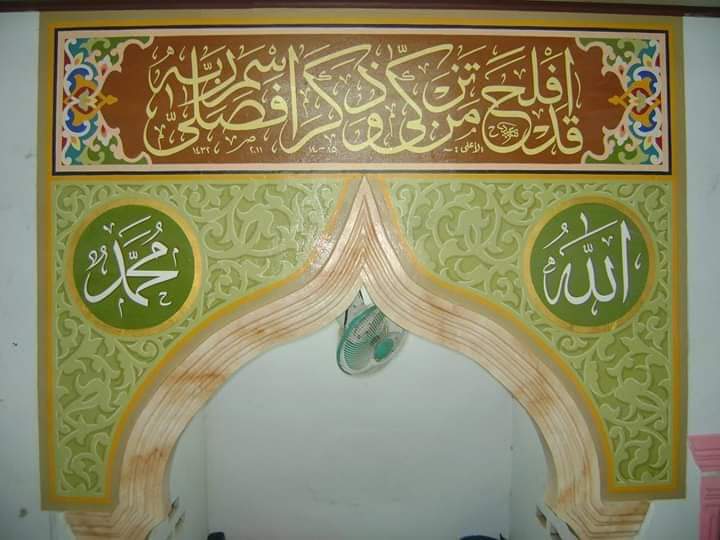 قَدْ أَفْلَحَ مَنْ تَزَكَّىٰ وَذَكَرَ اسْمَ رَبِّهِ فَصَلَّىٰ
الأعلى: ١٤-١٥ ٢٠١١ ١٤٣٢
الله
مُحَمَّدٌ